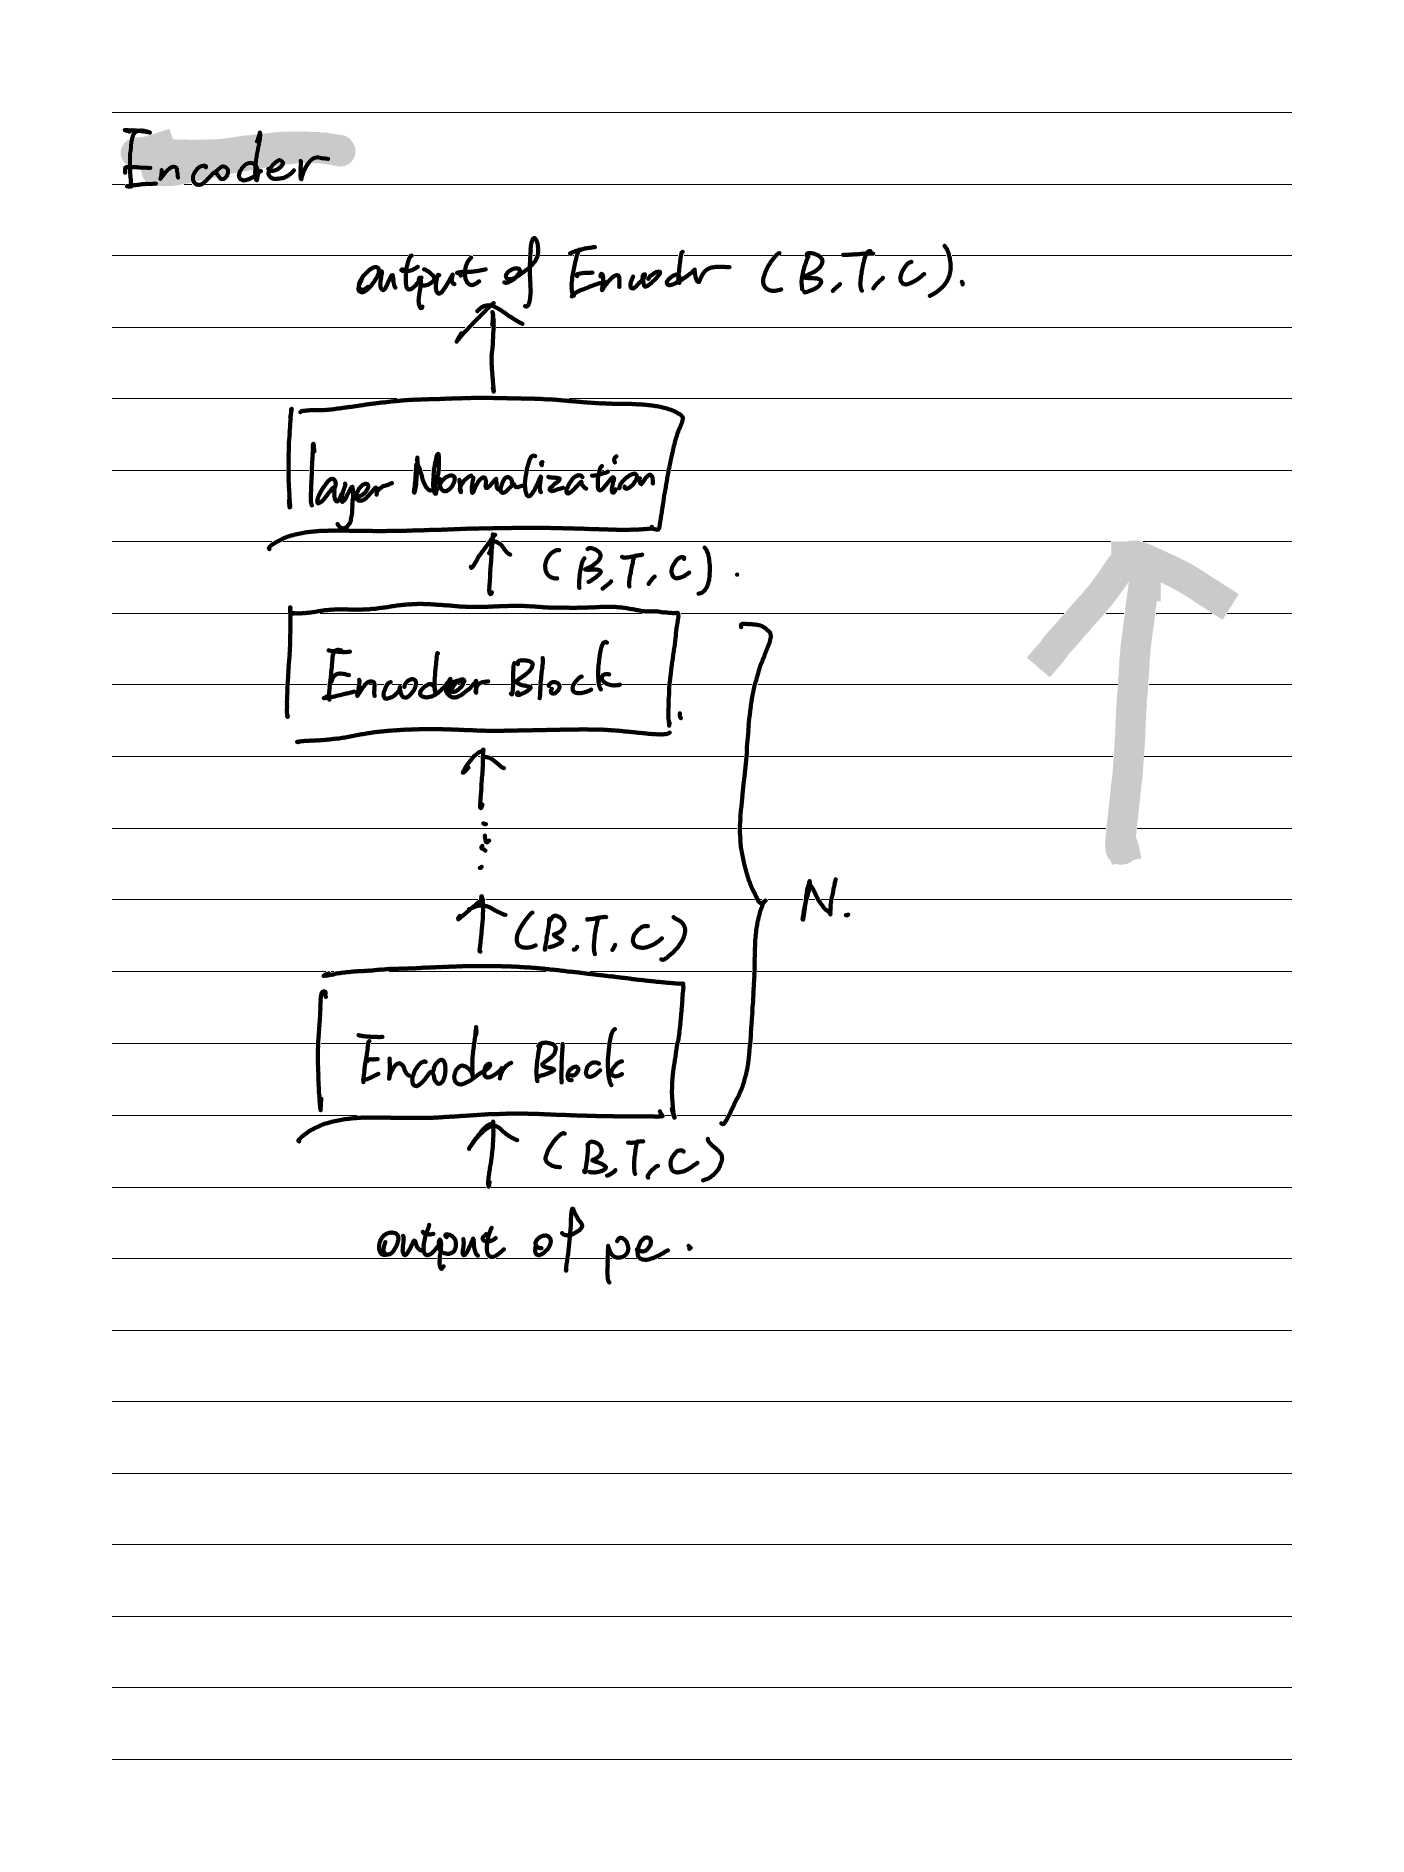 Encoder
output of Encodr (B,T,C).
layer Normalization
(B,T,C).
Encoder Block
N.
(B,T,C)
Encoder Block
(B,T,C)
output of pe.